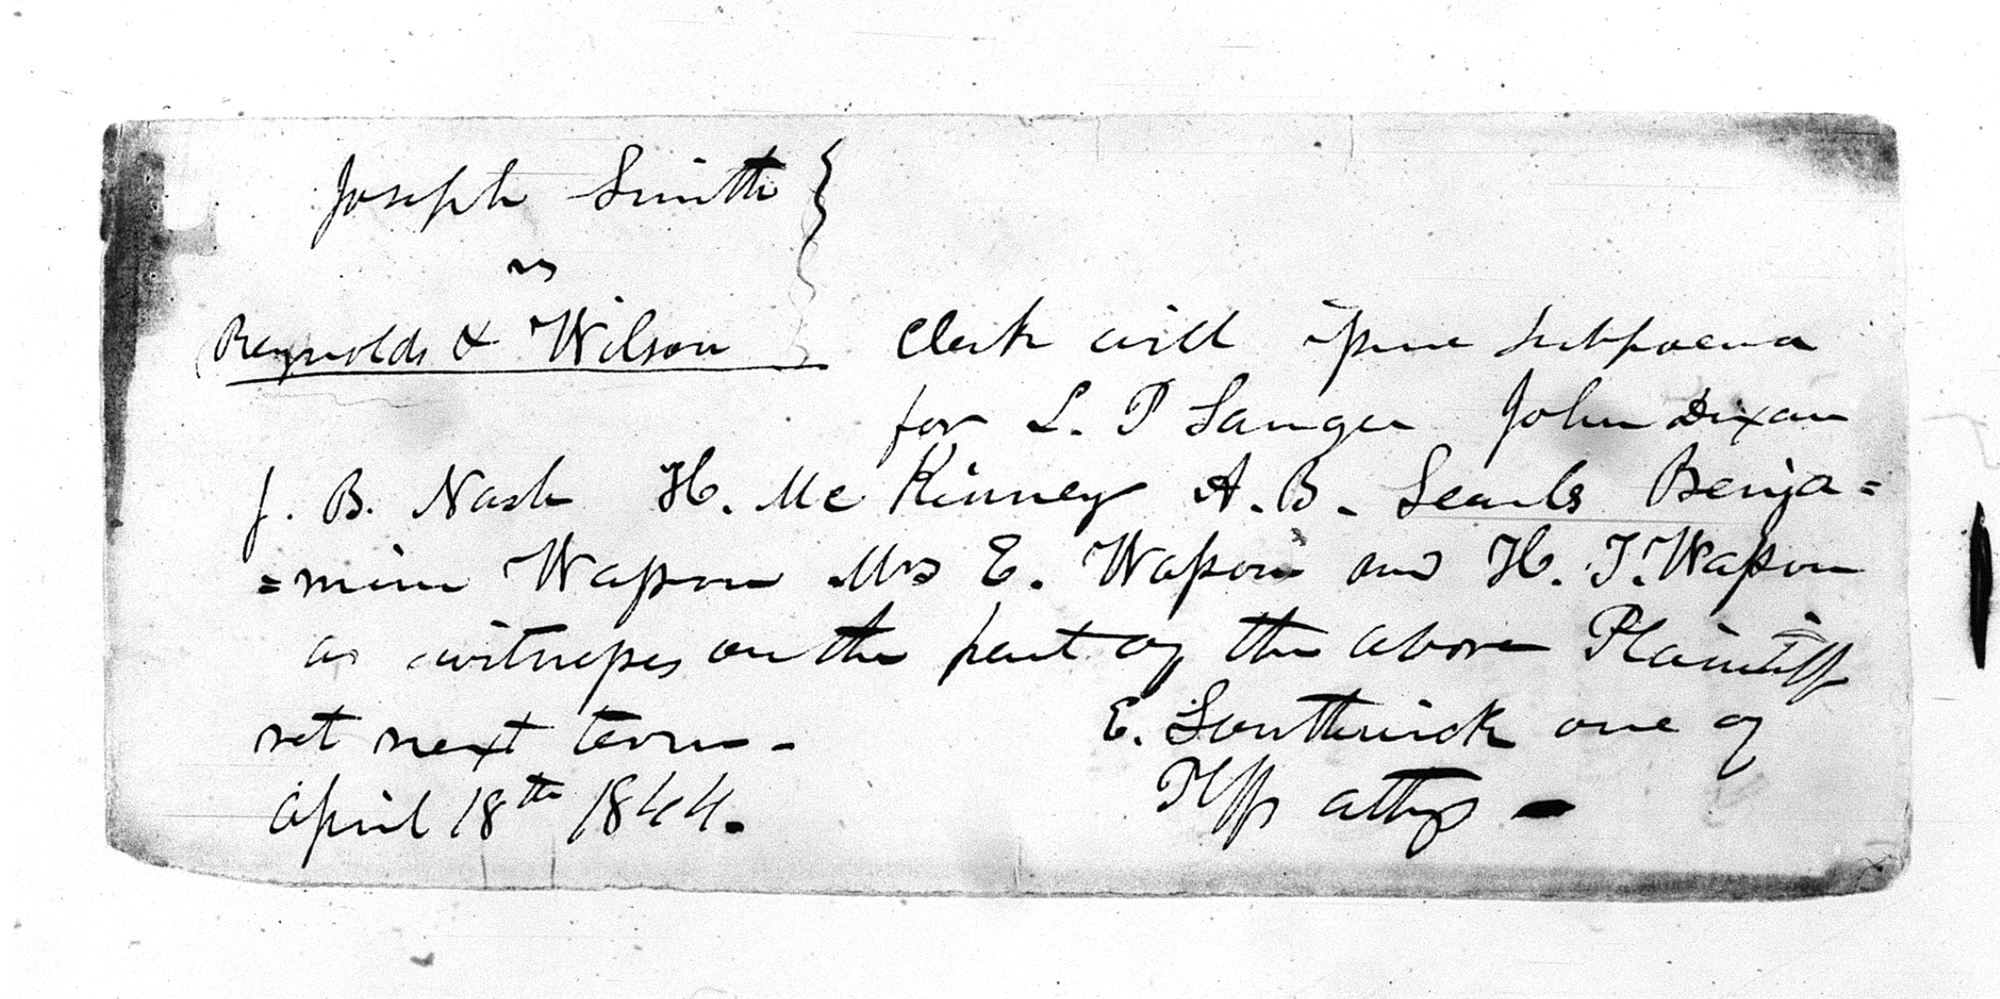 Joseph Smith }
vs
Reynolds & Wilson Clerk will issue subpoena
for L. P Sanger John Dixon
J. B. Nash H. Mc Kinney A. B. Searls Benja=
=min Wasson Mrs E. Wasson and H. T. Wasson
as witnesses on the part of the above Plaintiff
ret next term -
April 18th 1844.
E. Southwick one of
Plffs attys -